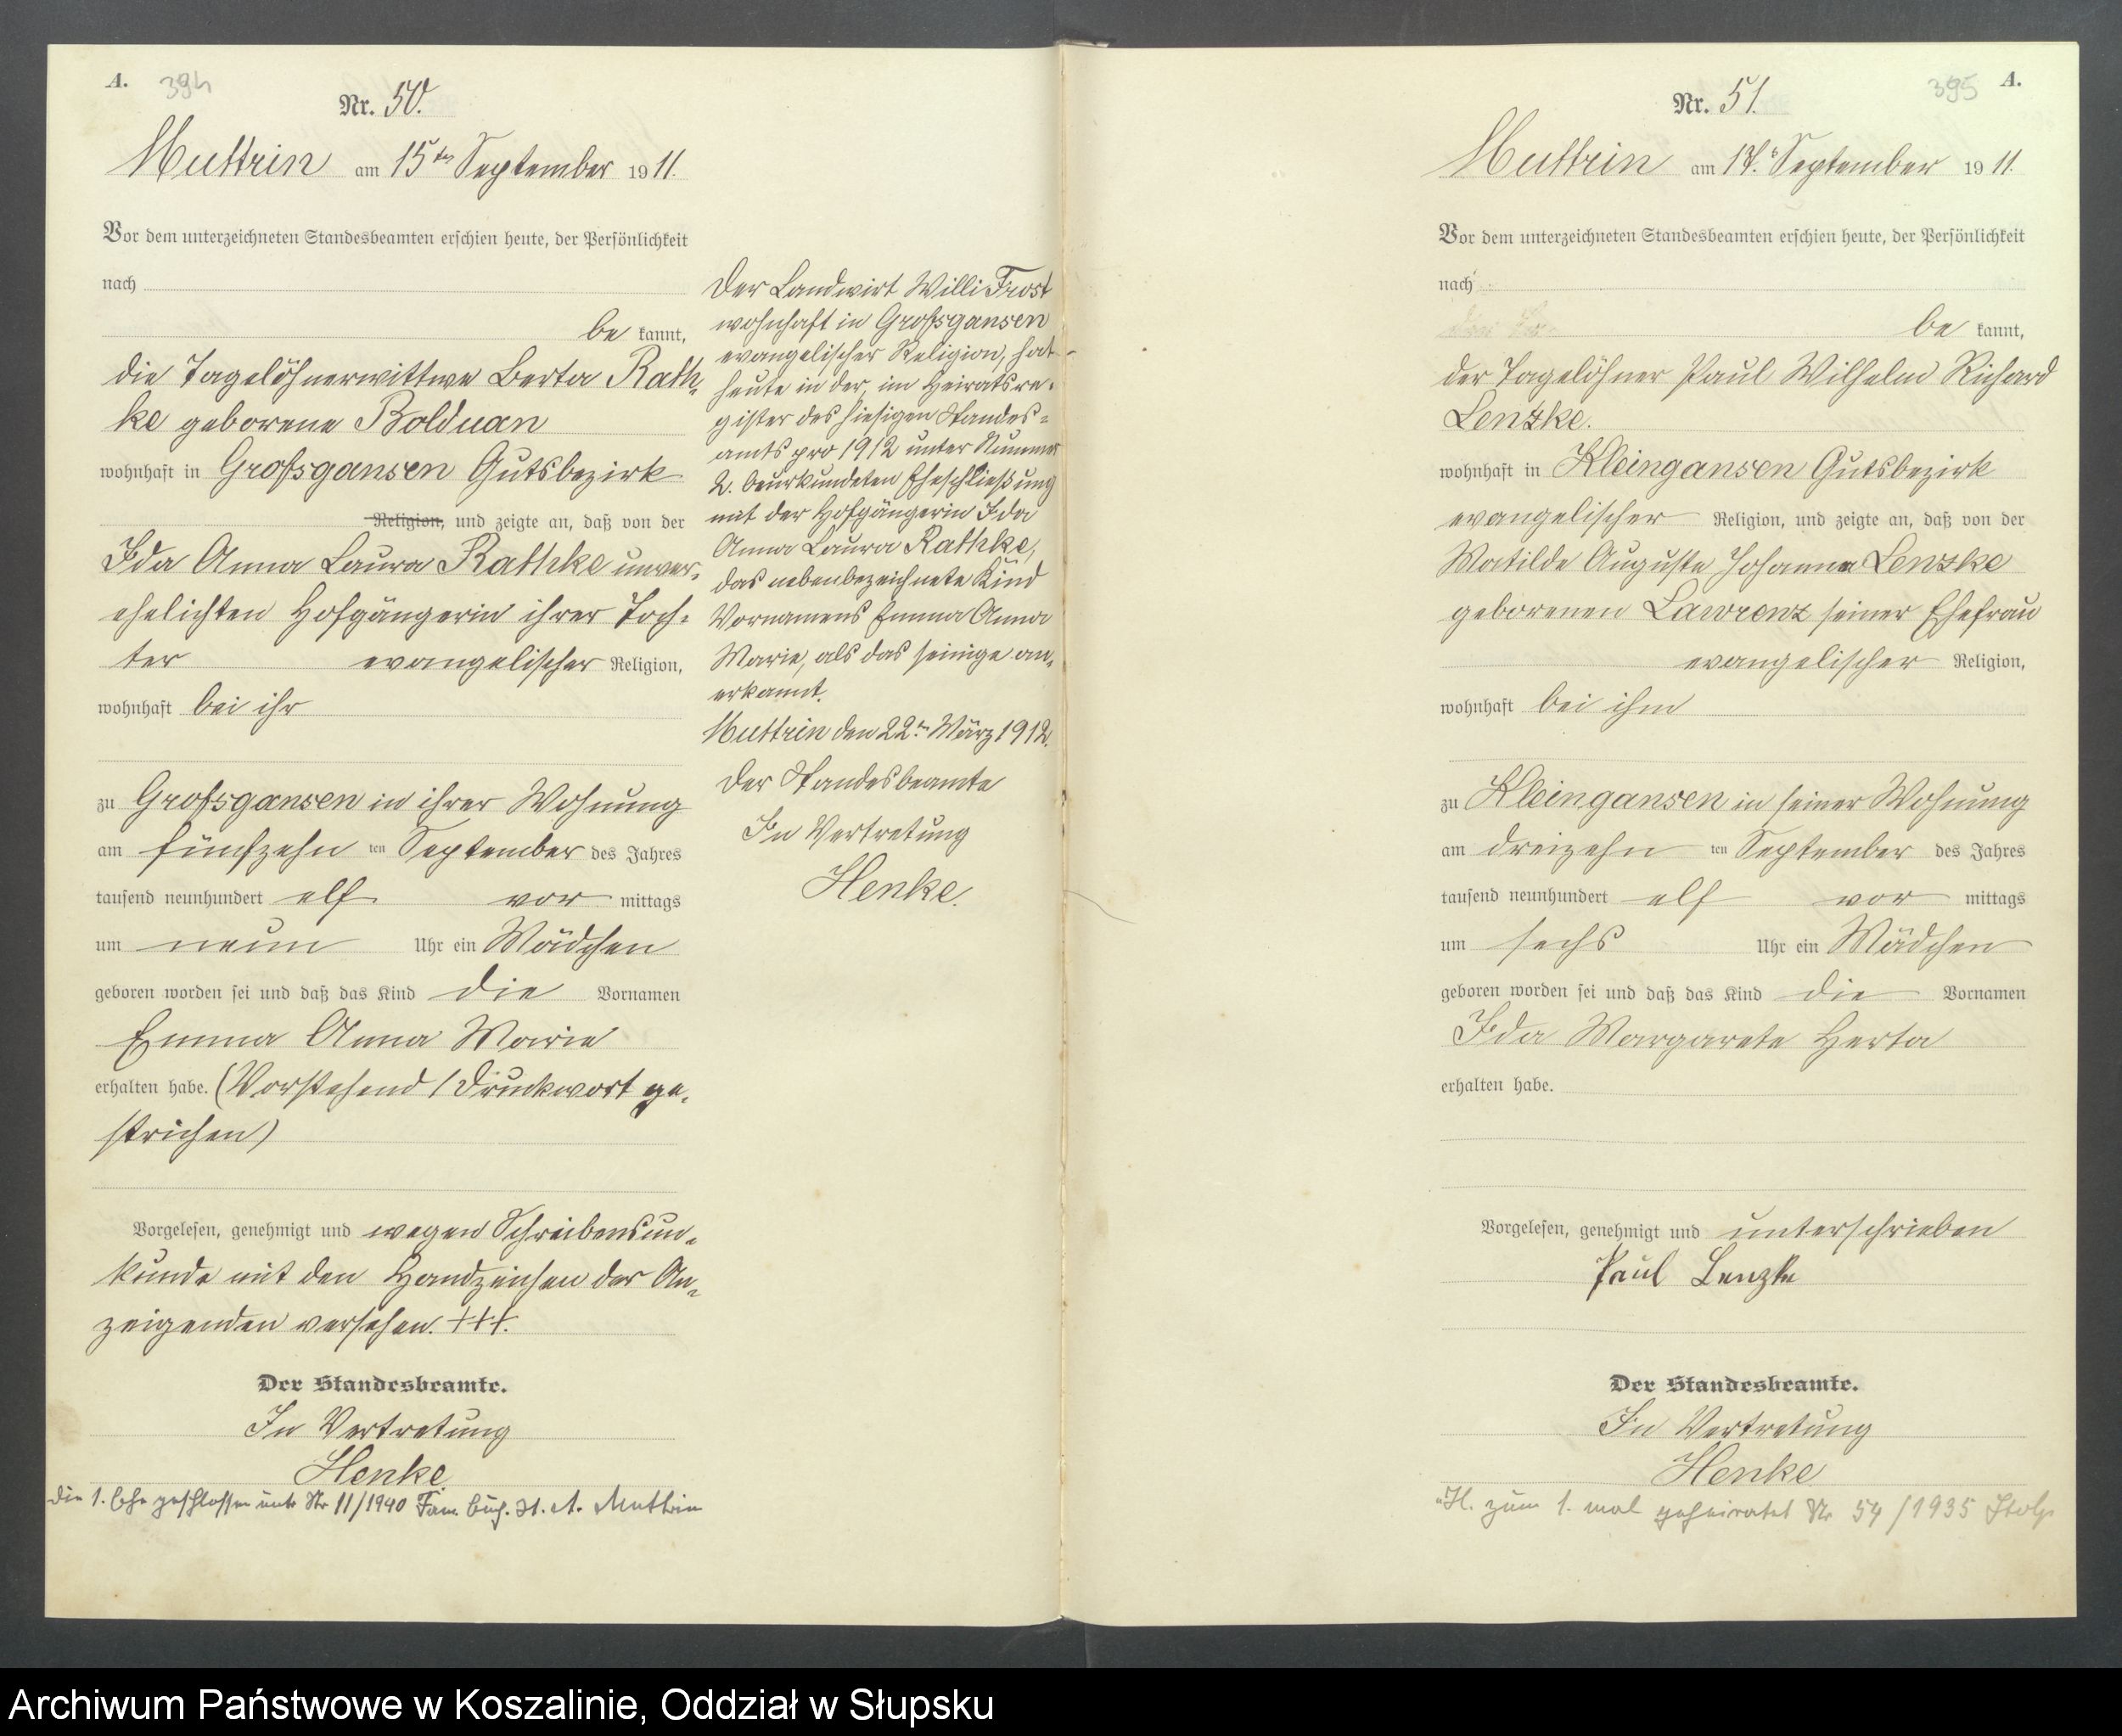 A. 394
Nr. 50.
Muttrin am 15ten September 1911.
Vor dem unterzeichneten Standesbeamten erschien heute, der Persönlichkeit
nach
be kannt,
die Tagelöhnerwittwe Berta Rath-
ke geborene Bolduan
wohnhaft in Grossgansen Gutsbezirk
Religion, und zeigte an, daß von der
Ida Anna Laura Rathke unver-
ehelichten Hofgängerin ihrer Toch-
ter evangelischer Religion,
wohnhaft bei ihr
zu Grossgansen in ihrer Wohnung
am fünfzehn ten September des Jahres
tausend neunhundert elf vor mittags
um neun Uhr ein Mädchen
geboren worden sei und daß das Kind die Vornamen
Emma Anna Marie
erhalten habe. (Vorstehend 1 Druckwort ge-
strichen)
Vorgelesen, genehmigt und wegen Schreibensun-
kunde mit den Handzeichen der An-
zeigenden versehen. +++.
Der Standesbeamte.
In Vertretung
Henke.
Die 1. Ehe geschlossen unter Nr 11/1940 Fam. Buch. St. A. Muttrin
Der Landwirt Willi Frost
wohnhaft in Grossgansen
evangelischer Religion, hat
heute in der, im Heiratsre-
gister des hiesigen Standes-
amts pro 1912 unter Nummer
2. beurkundeten Eheschließung
mit der Hofgängerin Ida
Anna Laura Rathke,
das nebenbezeichnete Kind
Vornamens Emma Anna
Marie, als das seinige an-
erkannt.
Muttrin den 22ten März 1912.
Der Standesbeamte
In Vertretung
Henke.
395 A.
Nr. 51.
Muttrin am 17. September 1911.
Vor dem unterzeichneten Standesbeamten erschien heute, der Persönlichkeit
nach
be kannt,
der Tagelöhner Paul Wilhelm Richard
Lenzke.
wohnhaft in Kleingansen Gutsbezirk
evangelischer Religion, und zeigte an, daß von der
Matilde Auguste Johanna Lenzke
geborenen Lawrenz seiner Ehefrau
evangelischer Religion,
wohnhaft bei ihm
zu Kleingansen in seiner Wohnung
am dreizehn ten September des Jahres
tausend neunhundert elf vor mittags
um sechs Uhr ein Mädchen
geboren worden sei und daß das Kind die Vornamen
Ida Margarete Herta
erhalten habe.
Vorgelesen, genehmigt und unterschrieben
Paul Lenzke
Der Standesbeamte.
In Vertretung
Henke
zum 1. mal geheiratet Nr 54/1935 Stolp
Archiwum Państwowe w Koszalinie, Oddział w Słupsku